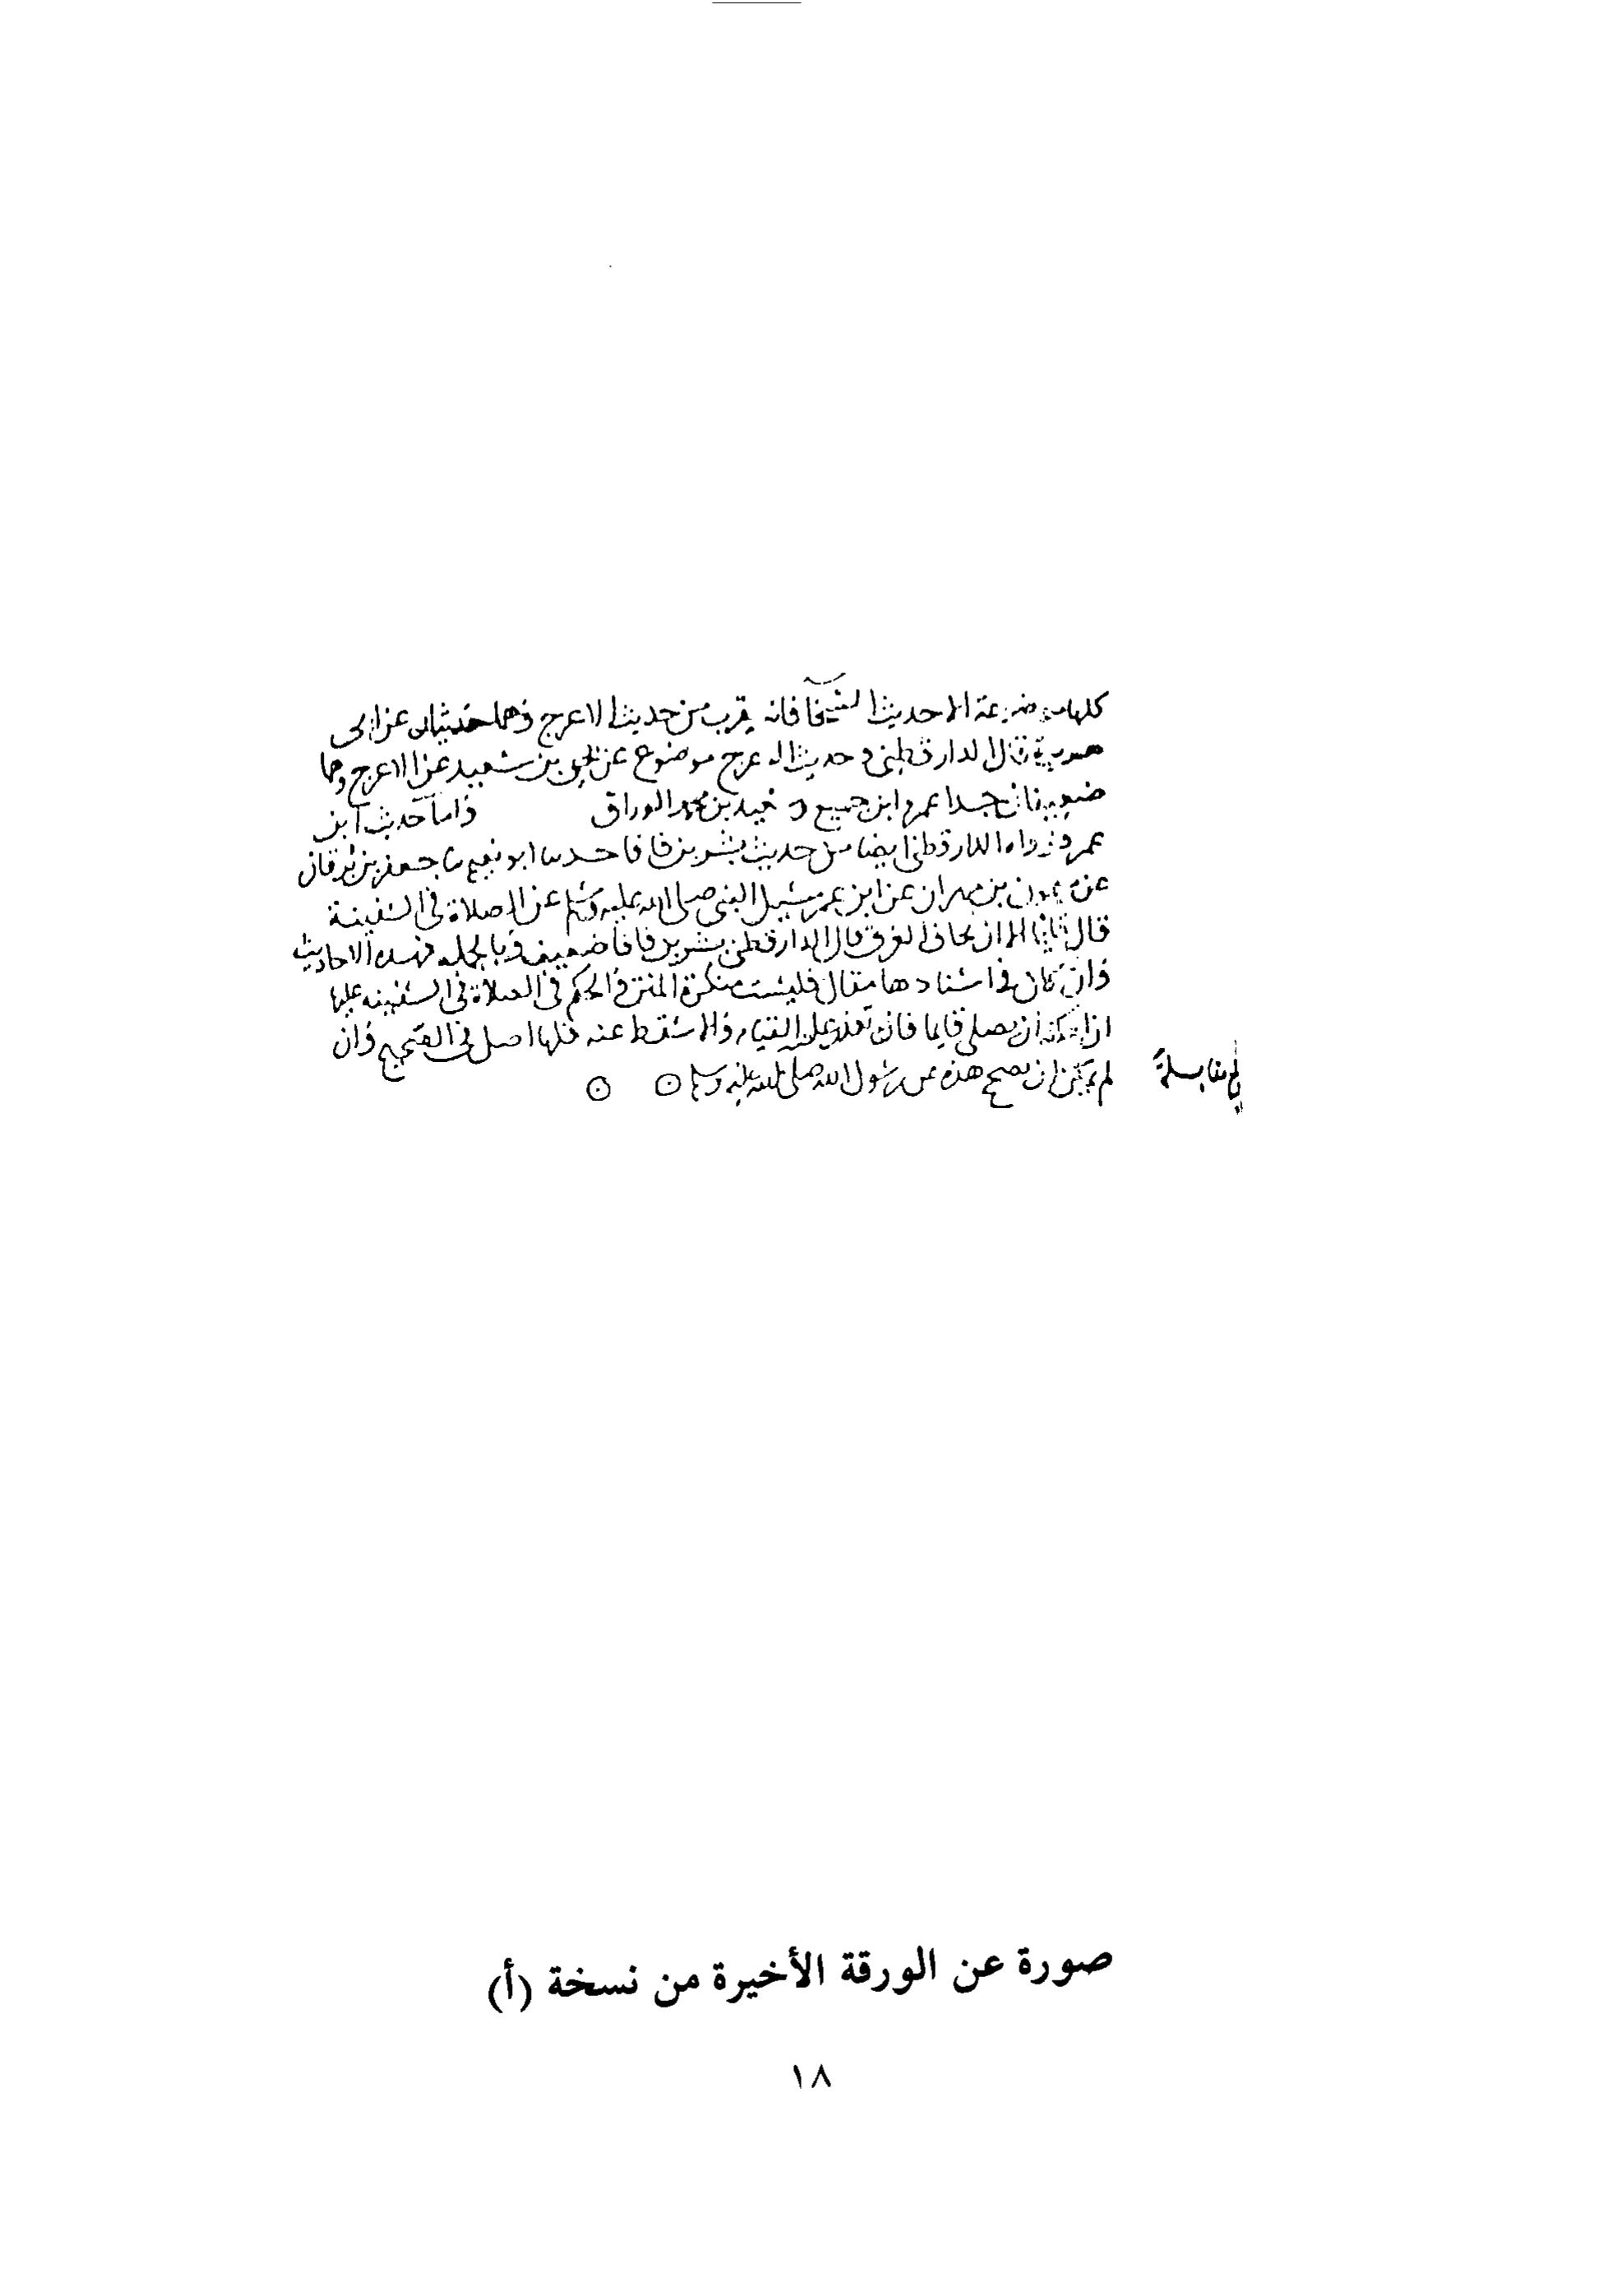 كلها موضوعة الا حديث فانه يقرب من حديث الاعرج وهما حديثان عن ابى
هريرة قال الدارقطنى وحديث الاعرج موضوع عن بن سعيد عن الاعرج وهما
ضعيفان جدا عمرو ابن جميع و بن محمد الوراق واما حديث ابن
عمر فرواه الدارقطنى ايضا من حديث بشر بن فافا حدثنا ابو نعيم ثنا جعفر بن برقان
عن ميمون بن مهران عن ابن عمر سئل النبى صلى الله عليه وسلم عن الصلاة فى السفينة
قال قائما الا ان يخاف الغرق قال الدارقطنى بشر بن فافا ضعيف وبالجمله فهذه الاحاديث
وان كان فى اسنادها مقال فليست منكرة المتن والحكم فى الصلاة فى السفينه
ان امكنه ان يصلى قايما فان تعذر عليه القيام والا سقط عنه فلها اصل فى الصحيح وان
لم يكن ان يصح هذه عن رسول الله صلى الله عليه وسلم
بلغ مقابلة
صورة عن الورقة الأخيرة من نسخة (أ)
١٨